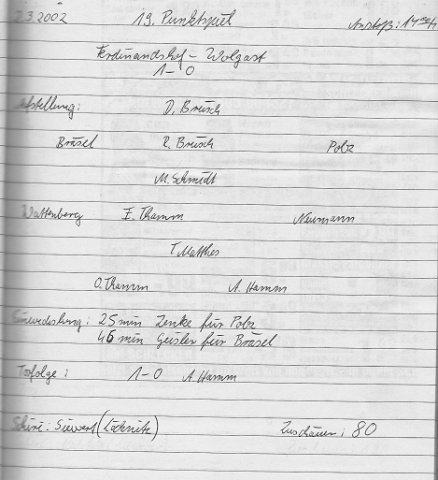 2.3.2002 19. Punktspiel Anstoß: 14 00 h
Ferdinandshof - Wolgast
1-0
Aufstellung: D. Breisch
Bräsel R. Breisch Polz
M. Schmidt
Wattenberg E. Thamm Neumann
T. Matthes
O. Thamm A. Hamm
Einwechslung: 25 min Zenke für Polz
46 min Geisler für Bräsel
Torfolge: 1-0 A Hamm
Schiri: Siewert (Löcknitz) Zuschauer: 80